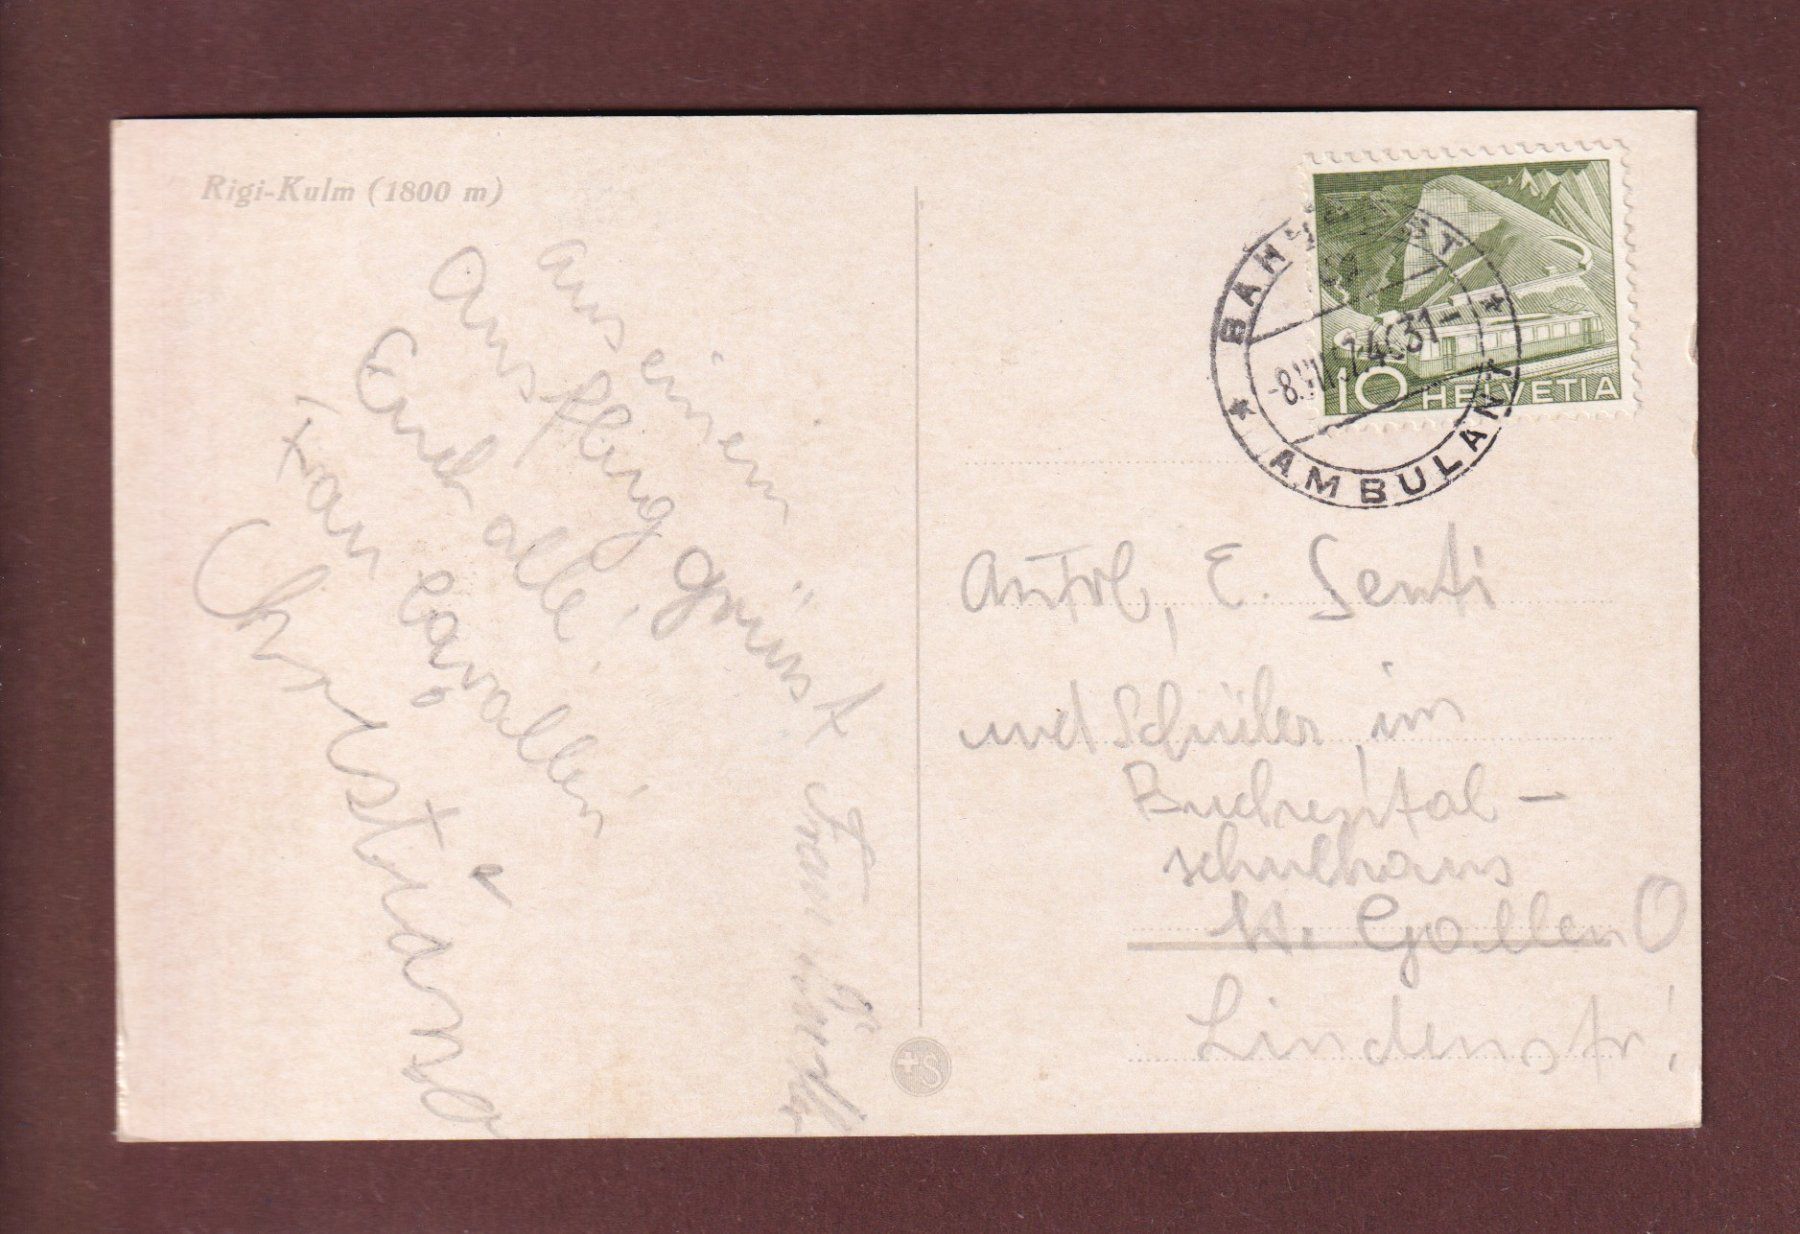 Rigi-Kulm (1800 m)
aus einem
Ausflug grüsst
Euch alle,
Frau Cavallin
Christians
Frau
BAHNPOST
AMBULANT
-8.VII.
31-
10 HELVETIA
E. Senti
und Schüler im
Buchental-
schulhaus
St. Gallen O
Lindenstr!
+S